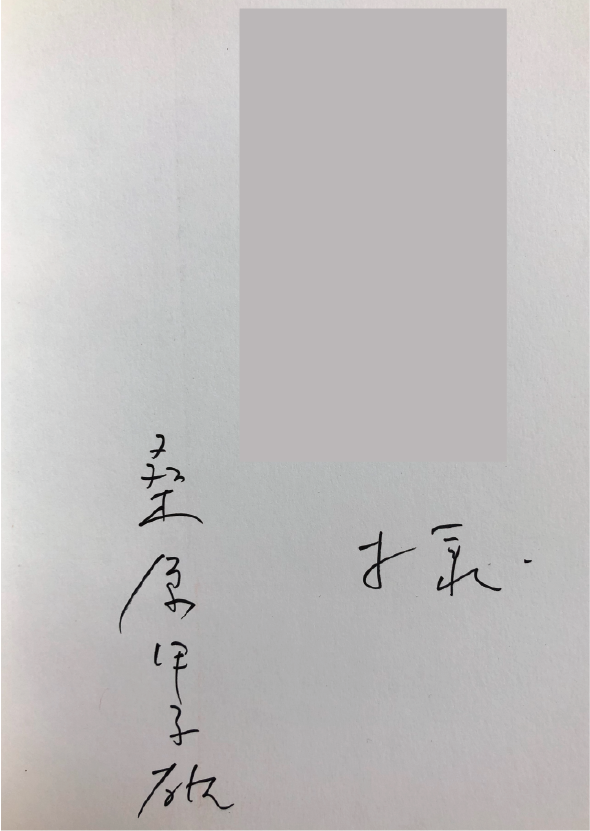 様
桑原甲子雄